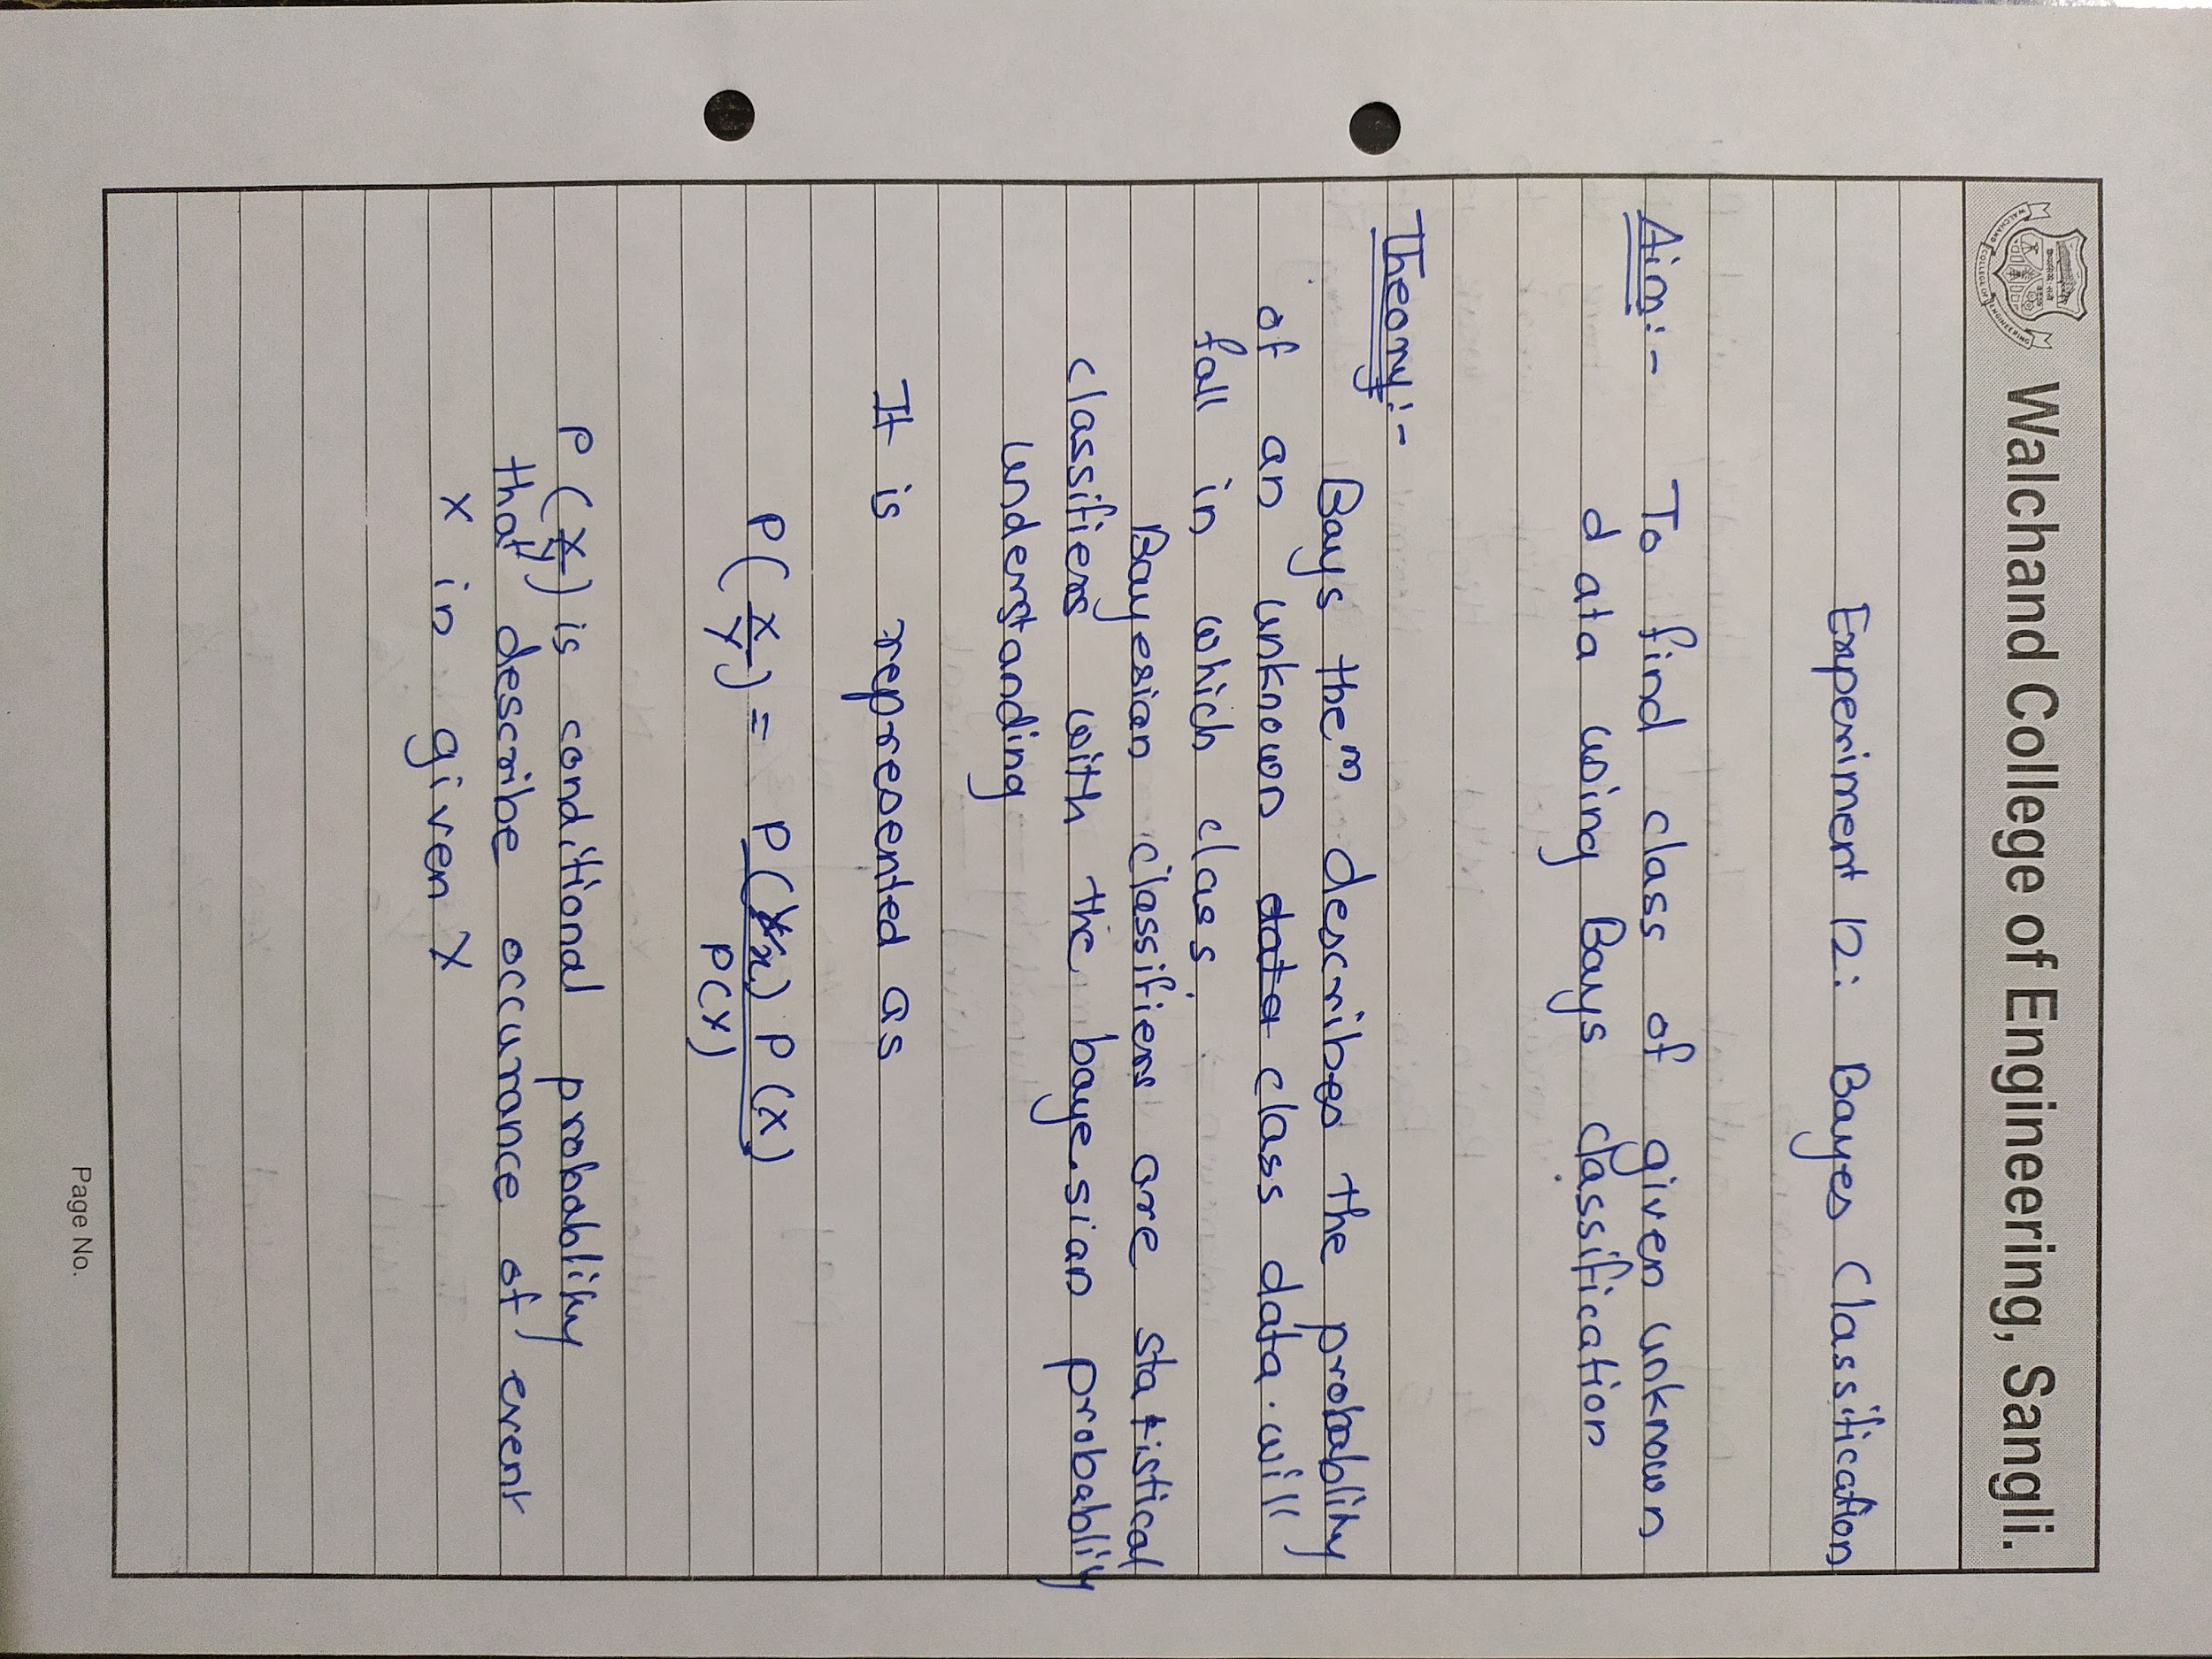 Walchand College of Engineering, Sangli.
Experiment 12: Bayes Classification
Aim:- To find class of given unknown
data using Bays classification
Theory:-
Bays them describes the probablity
of an unknown data class data will
fall in which clas
Bayesian classifiers are statistical
classifiers with the bayesian probablity
understanding
It is represented as
P(X/Y) = P(Y/X) P(X)
P(Y)
P(X/Y) is conditional probablity
that describe occurance of event
X in given Y
Page No.